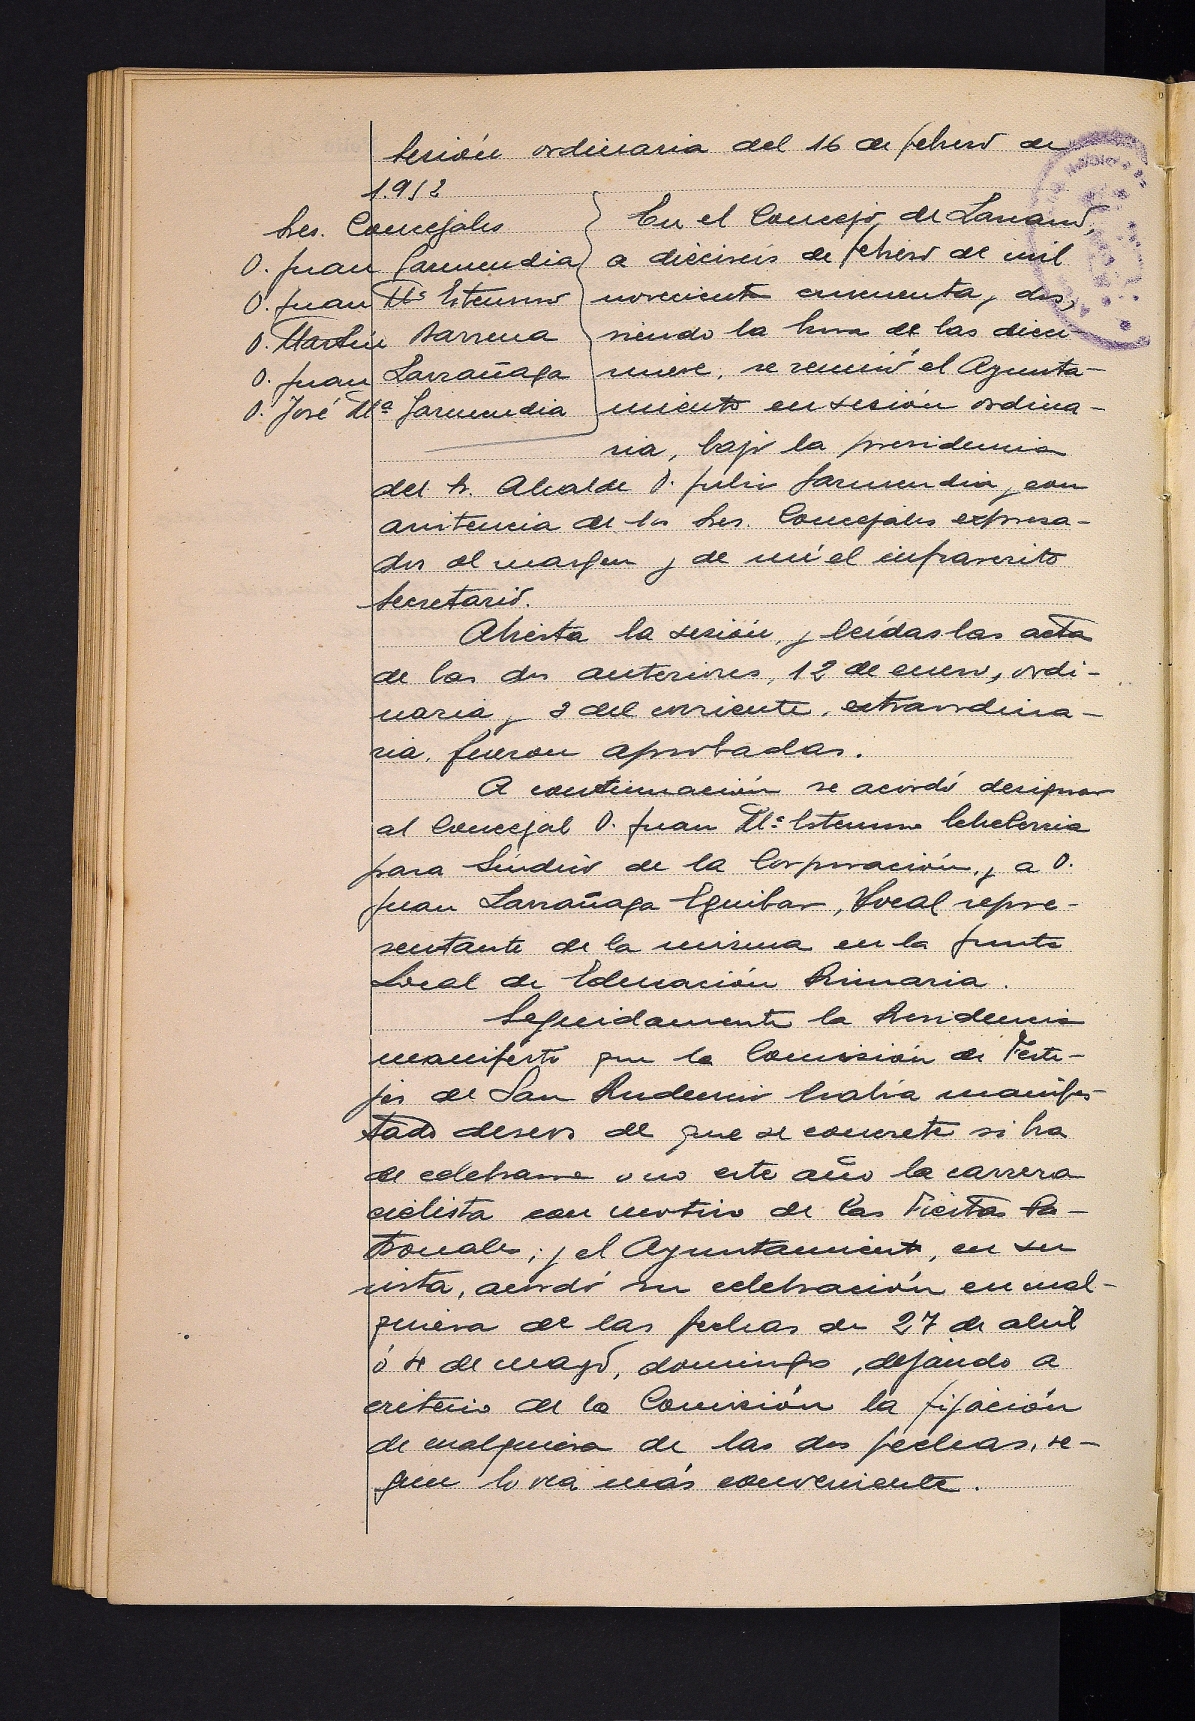 Sesión ordinaria del 16 de febrero de
1.952
Sres. Concejales
D. Juan Garmendia
D. Juan Mª Estensoro
D. Martin Barrena
D. Juan Larrañaga
D. José Mª Garmendia
En el Concejo de Lazcano,
a dieciseis de febrero de mil
novecientos cincuenta y dos,
siendo la hora de las dieci
nueve, se reunió el Ayunta-
miento en sesión ordina-
ria, bajo la presidencia
del Sr. Alcalde D. Julio Garmendia, con
asistencia de los Sres. Concejales expresa-
dos al margen y de mí el infrascrito
Secretario.
Abierta la sesión, y leídas las acta
de las dos anteriores, 12 de enero, ordi-
naria y 3 del corriente, extraordina-
ria, fueron aprobadas.
A continuación se acordó designar
al Concejal D. Juan Mª Estensoro Echeverria
para Síndico de la Corporación, y a D.
Juan Larrañaga Eguibar, Vocal repre-
sentante de la misma en la Junta
Local de Educación Primaria.
Seguidamente la Presidencia
manifestó que la Comisión de Feste-
jos de San Prudencio había manifes-
tado deseos de que se concrete si ha
de celebrarse o no este año la carrera
ciclista con motivo de las Fiestas Pa-
tronales; y el Ayuntamiento, en su
vista, acordó su celebración en cual-
quiera de las fechas de 27 de abril
ó 4 de mayo, domingo, dejando a
criterio de la Comisión la fijación
de cualquiera de las dos fechas, se-
gún lo vea más conveniente.